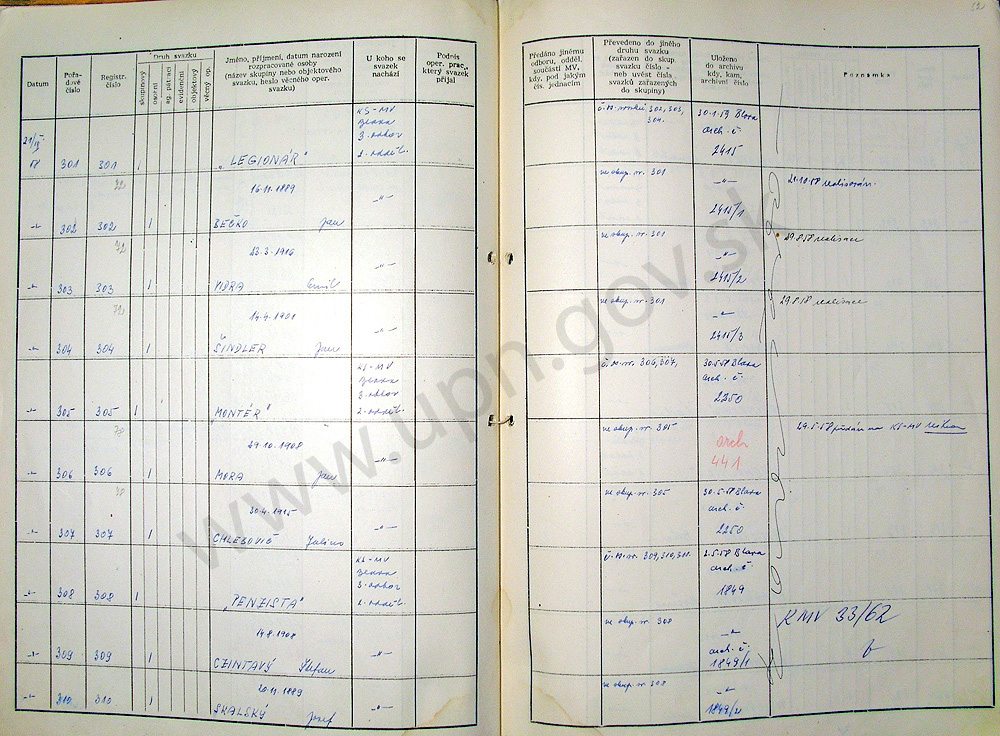 Datum
Pořa-
dové
číslo
Registr.
číslo
Druh svazku
skupinový
osobní
evidenční
objektový
věcný op.
Jméno, příjmení, datum narození
rozpracované osoby
(název skupiny nebo objektového
svazku, heslo věcného oper.
svazku)
U koho se
svazek
nachází
Podpis
oper. prac.,
který svazek
přijal
Předáno jinému
odboru, odděl.
součásti MV,
kdy, pod jakým
čís. jednacím
Převedeno do jiného
druhu svazku
(zařazen do skup.
svazku číslo -
neb uvést čísla
svazků zařazených
do skupiny)
Uloženo
do archivu
kdy, kam,
archivní číslo
Poznámka
301 301 1 „LEGIONÁR"
KS-MV
3. odbor
2. odděl.
302, 303,
304.
30.1.59 Blava
arch. č.
2415
72 16.11.1889
302 302 1 BEČKO Jan
-"-
ve skup. sv. 301
-"-
2415/1
21.10.58 realisován.
72 23.3.1916
303 303 1 MORA Emil
-"-
ve skup. sv. 301
-"-
2415/2
29.8.58 realisace
72 14.9.1901
304 304 1 ŠINDLER Jan
-"-
ve skup. sv. 301
-"-
2415/3
29.8.58 realisace
305 305 1 „MONTÉR"
KS-MV
3. odbor
2. odděl.
306, 307,
30.5.58 Blava
arch. č.
2250
29.10.1908
306 306 1 MORA Jan
-"-
ve skup. sv. 305
arch
441
29.5.58 předán na KS-MV
30.4.1915
307 307 1 CHLEBOVIČ Július
-"-
ve skup. sv. 305
30.5.58 Blava
arch. č.
2250
308 308 1 „PENZISTA"
KS-MV
3. odbor
2. odděl.
309, 310, 311.
2.5.58 Blava
arch. č.
1849
14.8.1908
309 309 1 CZINTAVÝ Štefan
-"-
ve skup. sv. 308
-"-
arch. č.
1849/1
KMV 33/62
20.11.1889
310 310 1 SKALSKÝ Josef
-"-
ve skup. sv. 308
-"-
1849/2
www.upn.gov.sk